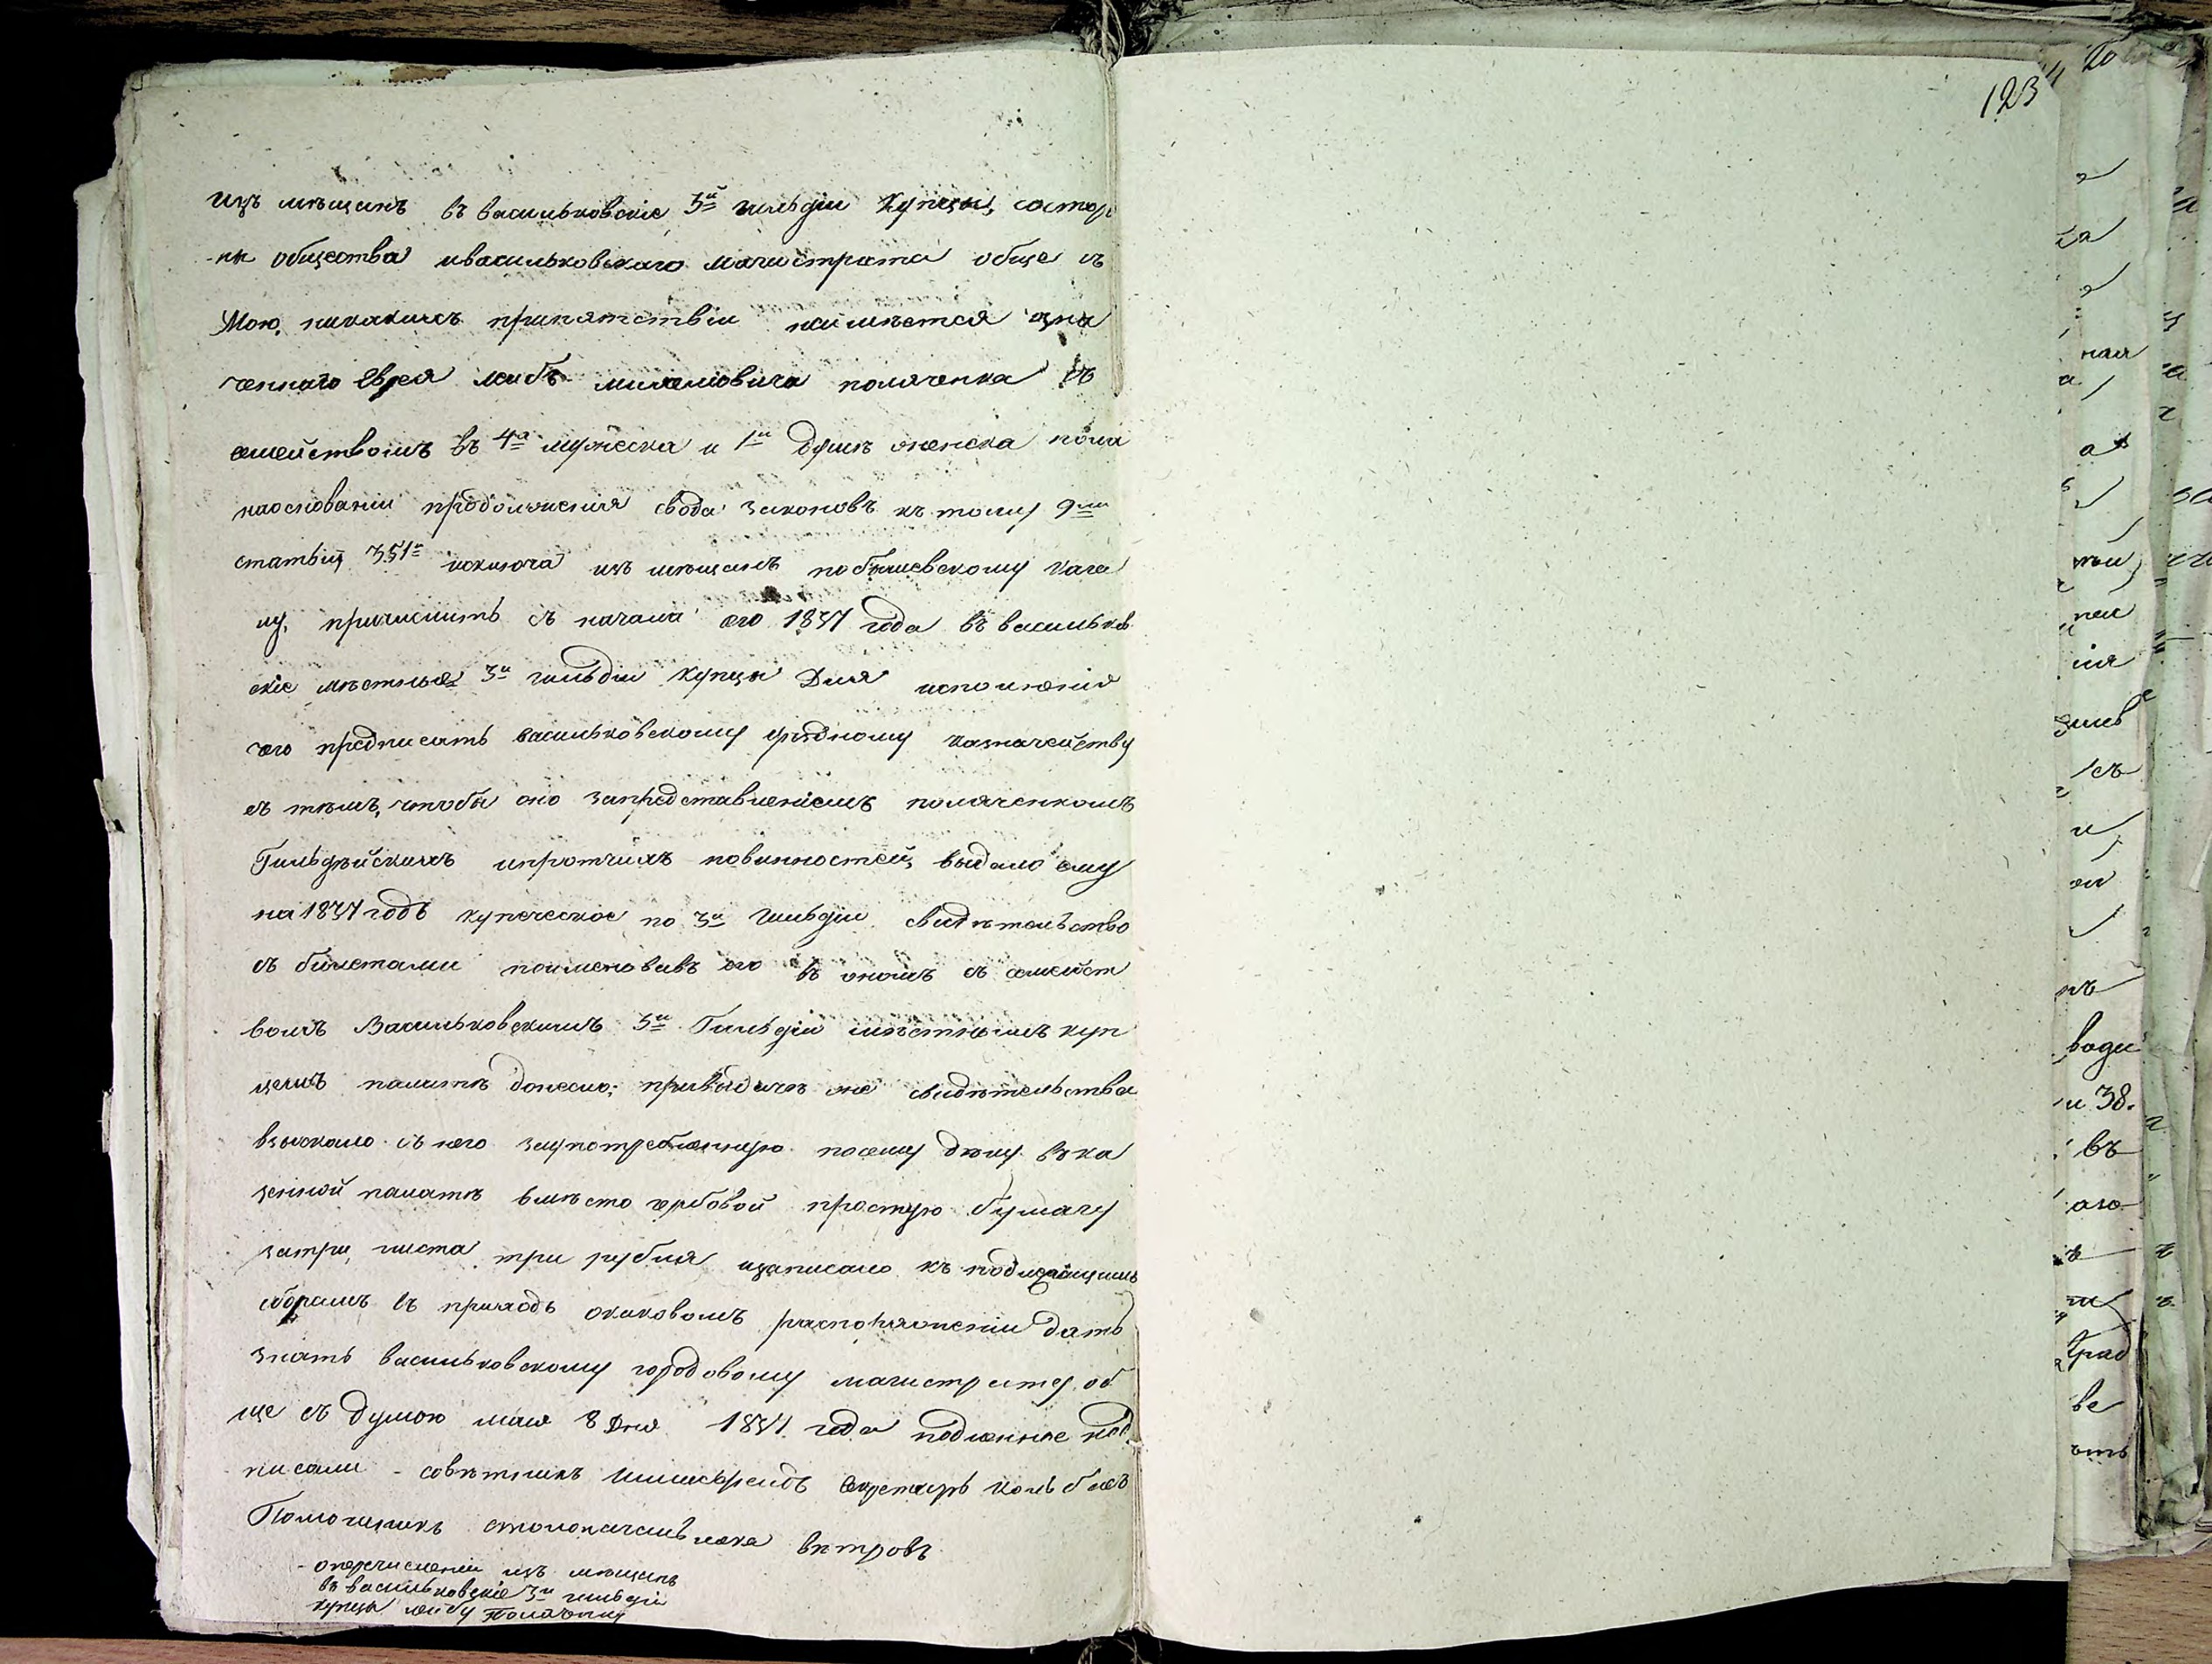 123
изъ мещанъ въ васильковскіе 3й гильдіи купцы, состоро
-ны общества ивасильковскаго магистрата обще съ
Мою, никакихъ припятствіи неимѣется озна
ченнаго Еврея Лейбъ полячекка съ
семействомъ въ 4а мужеска и 1й душъ женска пола
наоснованіи продолженія свода законовъ къ тому 9му
статьи, 351й исключа изъ мѣщанъ по кага
лу, причислить съ начала сего 1837 года въ васильков
скіе мѣстные 3й гильдіи купцы Для исполненія
чего предписать васильковскому уѣздному казначейству
съ тѣмъ, чтобы оно запредставленіемъ полаченкомъ
Гильдѣйскихъ ипротчихъ повинностей, выдало ему
на 1837 годъ купеческое по 3й Гильдіи свидѣтельство
съ билетами поименовавъ его въ ономъ съ семейст
вомъ Васильковскимъ 3й Гильдіи мѣстнымъ куп
цемъ палатѣ донесло; привыдачѣ же свидѣтельства
взыскало съ него заупотребленную посему дѣлу вка
зенной палатѣ вмѣсто гербовой простую бумагу
затри листа три рубля изаписало къ
сборамъ въ приходъ окаковомъ распоряженіи дать
знать васильковскому городовому магистрату, об
ще съ думою мая 8 Дня 1837 года подленное под
писали - совѣтникъ Секретарь
Помощникъ столоначальника вѣтровъ
- оперечисленіи изъ мѣщанъ
въ васильковскіе 3й гильдіи
купцы лейбу Полаченку